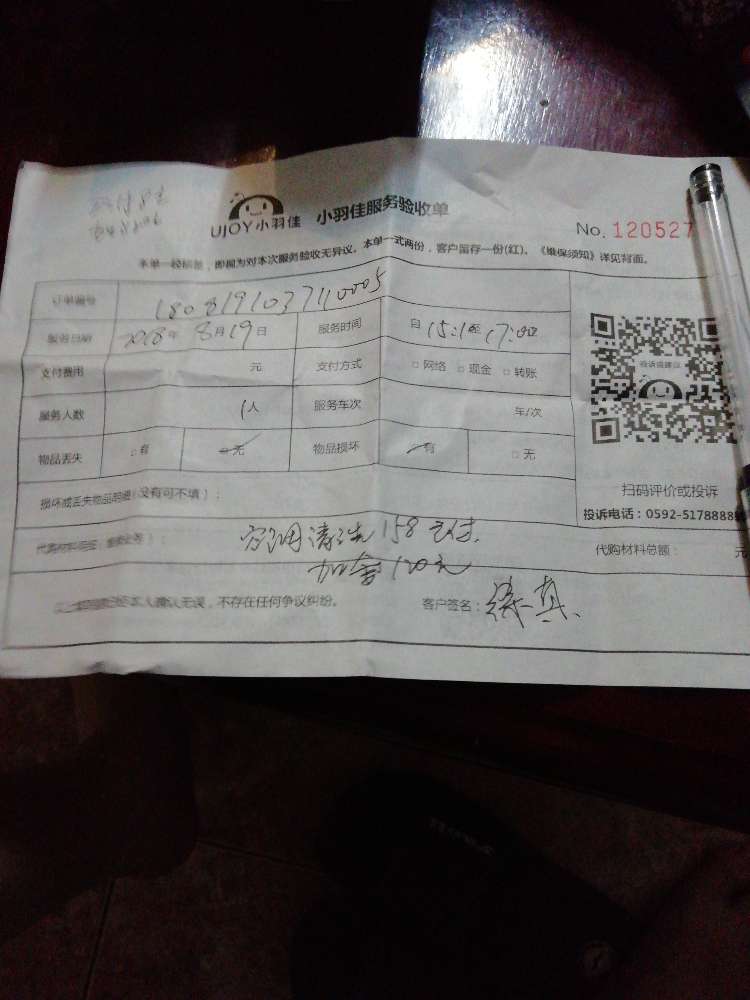 UJOY小羽佳 小羽佳服务验收单
No. 120527
本单一经标签，即视为对本次服务验收无异议。本单一式两份，客户留存一份(红)。《维保须知》详见背面。
订单编号 1808191037110005
服务日期 2018年 8月19日 服务时间 自15:1至17:00
支付费用 元 支付方式 □网络 □现金 □转账
服务人数 1人 服务车次 车/次
物品丢失 □有 □无 物品损坏 有 □无
损坏或丢失物品明细(没有可不填)：
空调清洗158元
加 120元
代购材料总额： 元
本人确认无误，不存在任何争议纠纷。 客户签名：
投诉或建议
扫码评价或投诉
投诉电话：0592-5178888